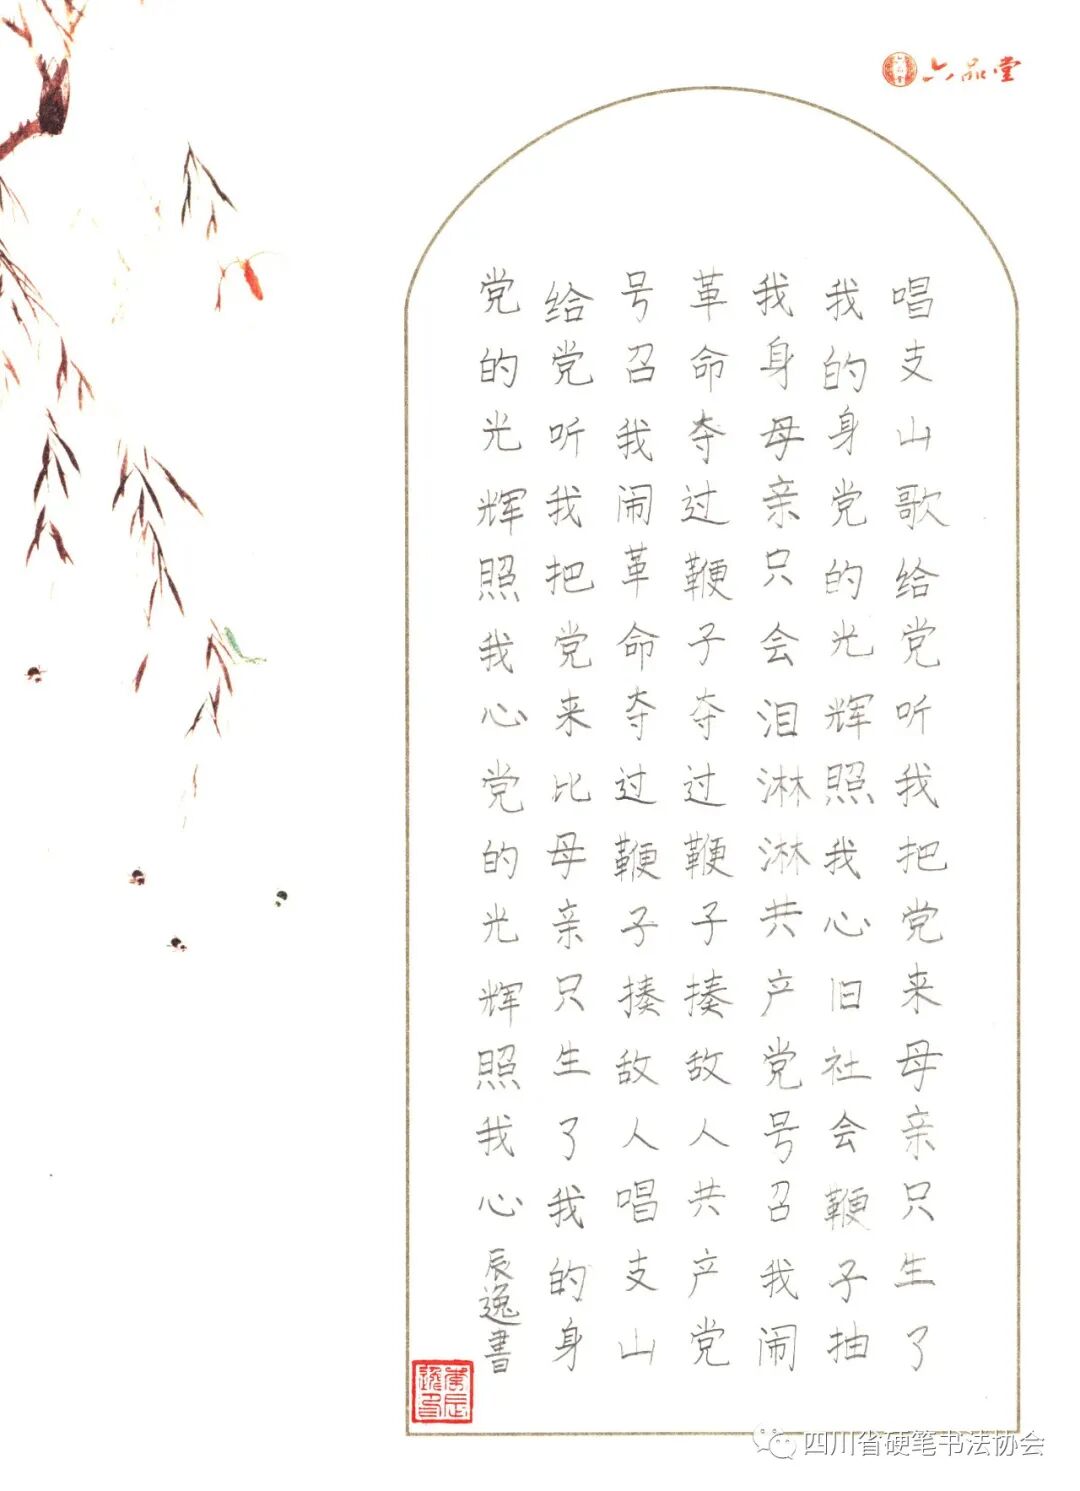 六品堂
唱支山歌给党听我把党来母亲只生了
我的身党的光辉照我心旧社会鞭子抽
我身母亲只会泪淋淋共产党号召我闹
革命夺过鞭子夺过鞭子揍敌人共产党
号召我闹革命夺过鞭子揍敌人唱支山
给党听我把党来比母亲只生了我的身
党的光辉照我心党的光辉照我心 辰逸書
四川省硬笔书法协会